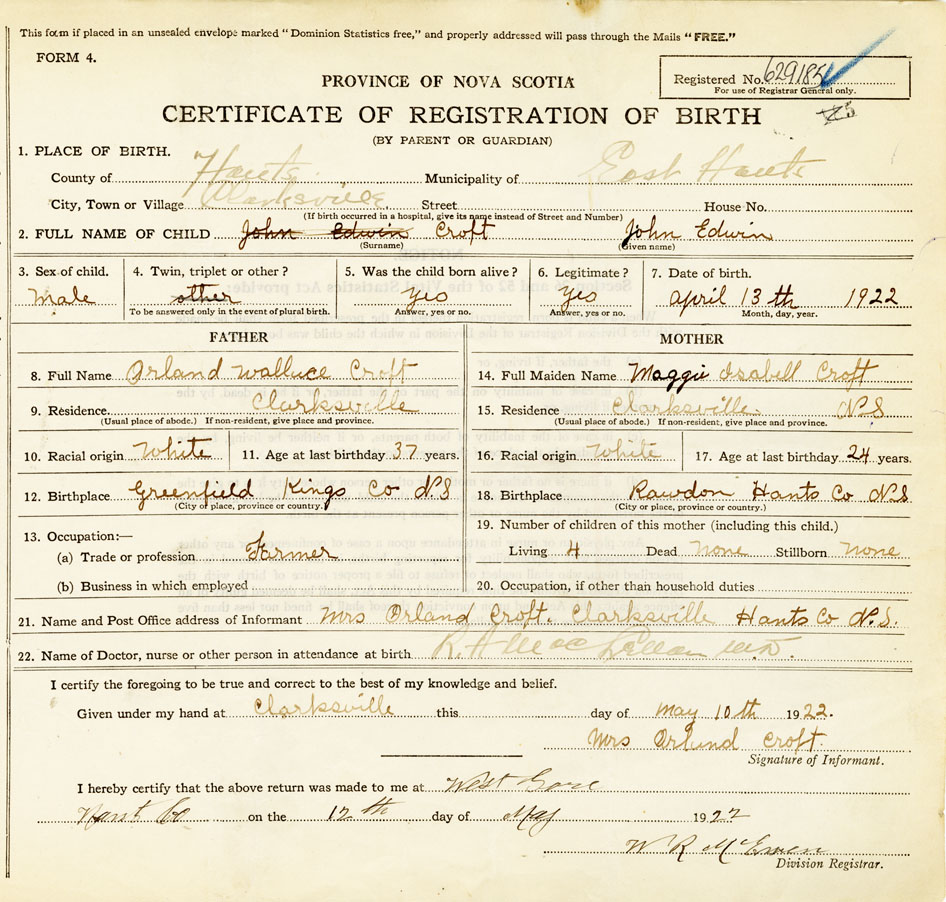 This form if placed in an unsealed envelope marked "Dominion Statistics free," and properly addressed will pass through the Mails "FREE."
FORM 4.
Registered No. 629185
For use of Registrar General only.
PROVINCE OF NOVA SCOTIA
CERTIFICATE OF REGISTRATION OF BIRTH
(BY PARENT OR GUARDIAN)
1. PLACE OF BIRTH.
County of Hants Municipality of East Hants
City, Town or Village Clarksville Street House No.
(If birth occurred in a hospital, give its name instead of Street and Number)
2. FULL NAME OF CHILD John Edwin Croft John Edwin
(Surname) (Given name)
3. Sex of child. 4. Twin, triplet or other? 5. Was the child born alive? 6. Legitimate? 7. Date of birth.
Male other Yes Yes April 13th 1922
To be answered only in the event of plural birth. Answer, yes or no. Answer, yes or no. Month, day, year.
FATHER
8. Full Name Orland Wallace Croft
9. Residence Clarksville
(Usual place of abode.) If non-resident, give place and province.
10. Racial origin White 11. Age at last birthday 37 years.
12. Birthplace Greenfield Kings Co N.S
(City or place, province or country.)
13. Occupation:—
(a) Trade or profession Farmer
(b) Business in which employed
MOTHER
14. Full Maiden Name Maggie Isabell Croft
15. Residence Clarksville N.S
(Usual place of abode.) If non-resident, give place and province.
16. Racial origin White 17. Age at last birthday 24 years.
18. Birthplace Rawdon Hants Co N.S.
(City or place, province or country.)
19. Number of children of this mother (including this child.)
Living 4 Dead None Stillborn None
20. Occupation, if other than household duties
21. Name and Post Office address of Informant Mrs Orland Croft. Clarksville Hants Co N.S.
22. Name of Doctor, nurse or other person in attendance at birth R. A. MacLellan M.D.
I certify the foregoing to be true and correct to the best of my knowledge and belief.
Given under my hand at Clarksville this day of May 10th 1922.
Mrs Orlund Croft.
Signature of Informant.
I hereby certify that the above return was made to me at West Gore
Hant Co on the 12th day of May 1922
W R McEwen
Division Registrar.